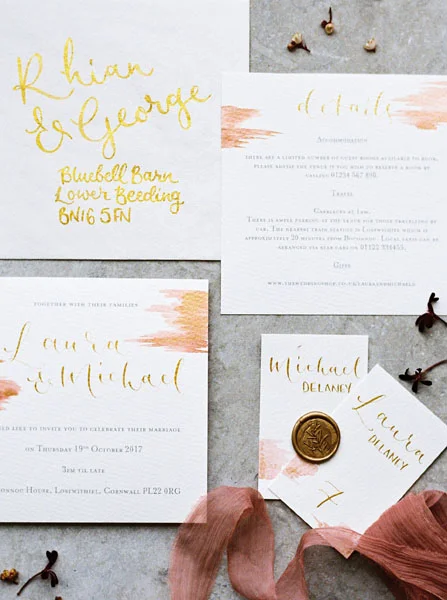 Rhian
& George
Bluebell Barn
Lower Beeding
BN16 5FN
details
Accommodation
there are a limited number of guest rooms available to book.
please advise the venue if you wish to reserve a room by
calling 01234 567 890.
Travel
Carriages at 1am.
There is ample parking at the venue for those travelling by
car. The nearest train station is Lostwithiel which is
approximately 20 minutes from Boconnoc House. Local taxis
Gifts
together with their families
Laura
& Michael
ould love to invite you to celebrate their marriage
on Thursday 19th October 2017
3pm til late
onnoc House, Lostwithiel, Cornwall PL22 0RG
Michael
DELANEY
Laura
DELANEY
7